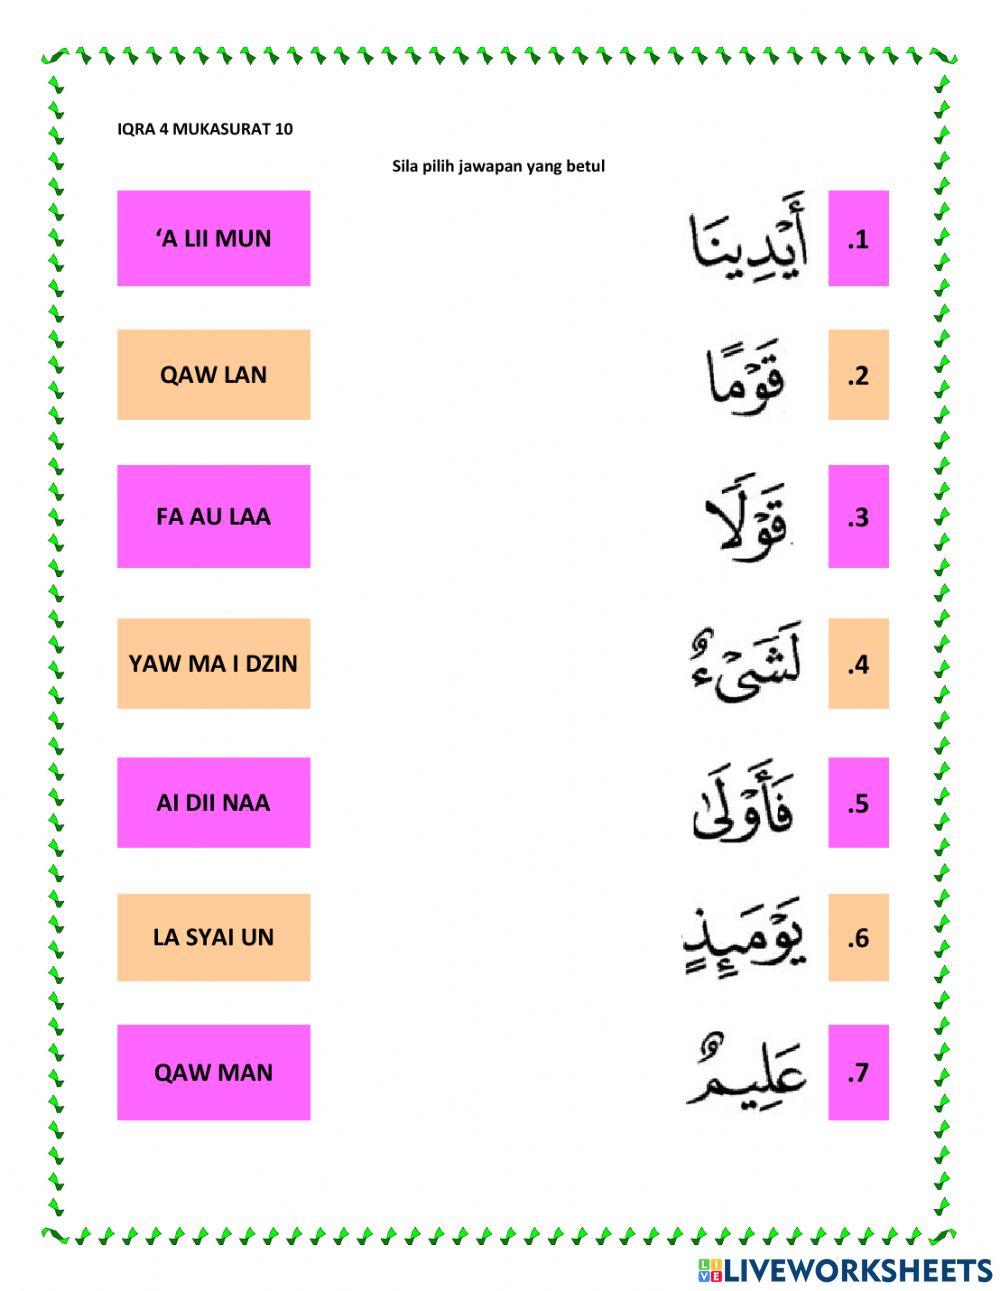 IQRA 4 MUKASURAT 10
Sila pilih jawapan yang betul
‘A LII MUN أَيْدِينَا .1
QAW LAN قَوْمًا .2
FA AU LAA قَوْلًا .3
YAW MA I DZIN لَشَىْءٌ .4
AI DII NAA فَأَوْلَىٰ .5
LA SYAI UN يَوْمَئِذٍ .6
QAW MAN عَلِيمٌ .7
LIVEWORKSHEETS